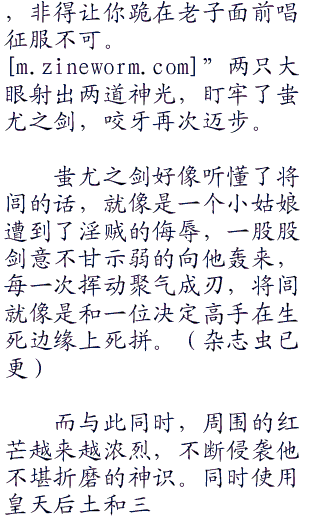 ，非得让你跪在老子面前唱
征服不可。
[m.zineworm.com]”两只大
眼射出两道神光，盯牢了蚩
尤之剑，咬牙再次迈步。
蚩尤之剑好像听懂了将
闾的话，就像是一个小姑娘
遭到了淫贼的侮辱，一股股
剑意不甘示弱的向他轰来，
每一次挥动聚气成刃，将闾
就像是和一位决定高手在生
死边缘上死拼。（杂志虫已
更）
而与此同时，周围的红
芒越来越浓烈，不断侵袭他
不堪折磨的神识。同时使用
皇天后土和三